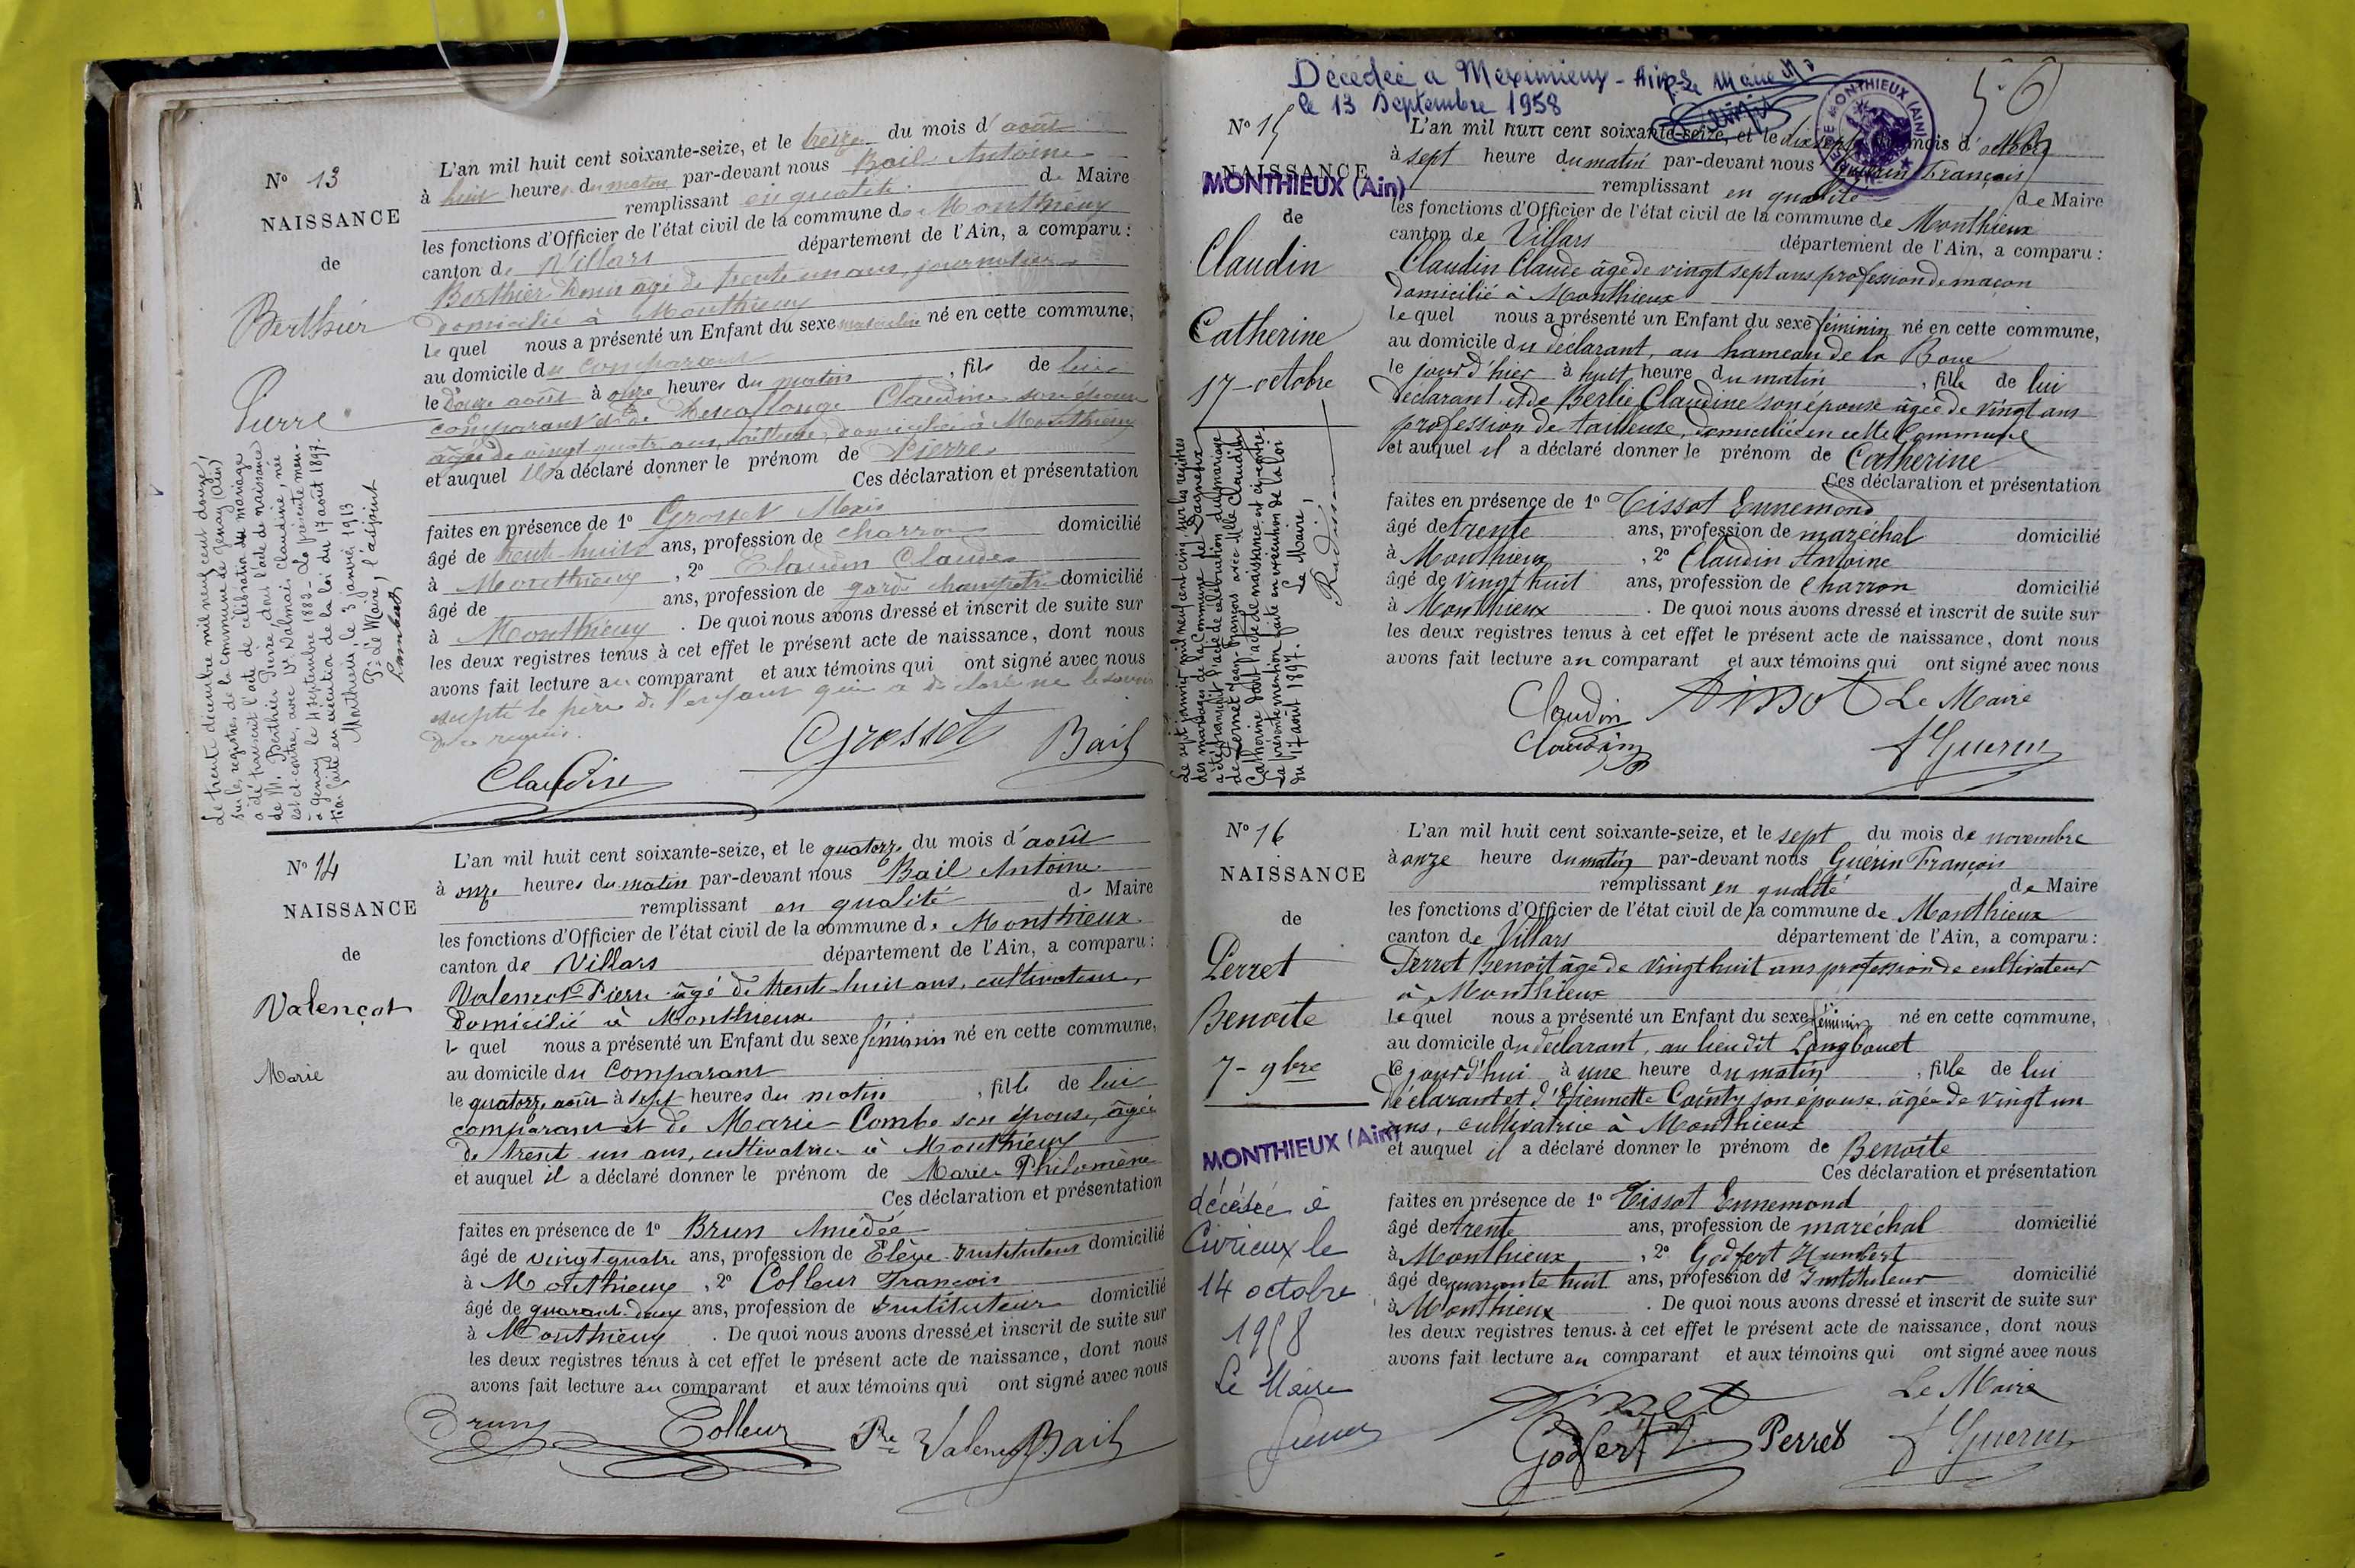 N° 13
NAISSANCE
de
Berthier
Pierre
Le trente décembre mil neuf cent douze,
sur les registres de la commune de Genay (Ain)
a été transcrit l'acte de célébration du mariage
de M. Berthier Pierre dont l'acte de naissance
est ci-contre, avec Vve Dalmais Claudine, née
à Genay le 4 septembre 1882 - La présente men-
tion faite en exécution de la loi du 17 août 1897.
Monthieux, le 3 janvier 1913
Pr le Maire, l'adjoint
L'an mil huit cent soixante-seize, et le treize du mois d'août
à huit heures du matin par-devant nous Bail Antoine
remplissant en qualité de Maire
les fonctions d'Officier de l'état civil de la commune de Monthieux
canton de Villars département de l'Ain, a comparu :
Berthier Louis âgé de trente un ans, journalier
domicilié à Monthieux
Le quel nous a présenté un Enfant du sexe masculin né en cette commune,
au domicile du comparant
le douze août à onze heures du matin, fils de lui
comparant et de Descollonge Claudine son épouse
âgée de vingt quatre ans, tailleuse, domiciliée à Monthieux
et auquel il a déclaré donner le prénom de Pierre
Ces déclaration et présentation
faites en présence de 1° Grosset Alexis
âgé de trente-huit ans, profession de charron domicilié
à Monthieux, 2° Claudin Claude
âgé de ans, profession de garde champêtre domicilié
à Monthieux. De quoi nous avons dressé et inscrit de suite sur
les deux registres tenus à cet effet le présent acte de naissance, dont nous
avons fait lecture au comparant et aux témoins qui ont signé avec nous
excepté le père de l'enfant qui a déclaré ne le savoir
de ce requis.
Claudin Grosset Bail
N° 14
NAISSANCE
de
Valençot
Marie
L'an mil huit cent soixante-seize, et le quatorze du mois d'août
à onze heures du matin par-devant nous Bail Antoine
remplissant en qualité de Maire
les fonctions d'Officier de l'état civil de la commune de Monthieux
canton de Villars département de l'Ain, a comparu :
Valençot Pierre âgé de trente-huit ans, cultivateur,
domicilié à Monthieux
le quel nous a présenté un Enfant du sexe féminin né en cette commune,
au domicile du comparant
le quatorze août à sept heures du matin, fille de lui
comparant et de Marie Combe son épouse, âgée
de trente un ans, cultivatrice à Monthieux
et auquel il a déclaré donner le prénom de Marie Philomène
Ces déclaration et présentation
faites en présence de 1° Brun Amédée
âgé de vingt quatre ans, profession de Elève Instituteur domicilié
à Monthieux, 2° Colleur François
âgé de quarante-deux ans, profession de Instituteur domicilié
à Monthieux. De quoi nous avons dressé et inscrit de suite sur
les deux registres tenus à cet effet le présent acte de naissance, dont nous
avons fait lecture au comparant et aux témoins qui ont signé avec nous
Brun Colleur Pre Valençot Bail
Décédée à Meximieux - Ain - Le Maire
le 13 Septembre 1958
56
N° 15
NAISSANCE
MONTHIEUX (Ain)
de
Claudin
Catherine
17 octobre
Le sept janvier mil neuf cent cinq, sur les registres
des mariages de la Commune de Dagneux
a été transcrit l'acte de célébration du mariage
de Jean François avec Mlle Claudin
Catherine dont l'acte de naissance est ci-contre.
La présente mention faite en exécution de la loi
du 17 août 1897.
Le Maire,
L'an mil huit cent soixante-seize, et le dix sept du mois d'octobre
à sept heure du matin par-devant nous Guérin François
remplissant en qualité de Maire
les fonctions d'Officier de l'état civil de la commune de Monthieux
canton de Villars département de l'Ain, a comparu :
Claudin Claude âgé de vingt sept ans profession de maçon
domicilié à Monthieux
Le quel nous a présenté un Enfant du sexe féminin né en cette commune,
au domicile du déclarant, au hameau de la Boue
le jour d'hier à huit heure du matin, fille de lui
déclarant et de Berlie Claudine son épouse âgée de vingt ans
profession de tailleuse, domiciliée en cette commune
et auquel il a déclaré donner le prénom de Catherine
Ces déclaration et présentation
faites en présence de 1° Tissot Ennemond
âgé de trente ans, profession de maréchal domicilié
à Monthieux, 2° Claudin Antoine
âgé de vingt huit ans, profession de charron domicilié
à Monthieux. De quoi nous avons dressé et inscrit de suite sur
les deux registres tenus à cet effet le présent acte de naissance, dont nous
avons fait lecture au comparant et aux témoins qui ont signé avec nous
Claudin Tissot Le Maire
Claudin F Guerin
N° 16
NAISSANCE
de
Perret
Benoite
7 - 9bre
MONTHIEUX (Ain)
décédée à
Civrieux le
14 octobre
1958
Le Maire
L'an mil huit cent soixante-seize, et le sept du mois de novembre
à onze heure du matin par-devant nous Guérin François
remplissant en qualité de Maire
les fonctions d'Officier de l'état civil de la commune de Monthieux
canton de Villars département de l'Ain, a comparu :
Perret Benoit âgé de vingt huit ans profession de cultivateur
à Monthieux
Le quel nous a présenté un Enfant du sexe féminin né en cette commune,
au domicile du déclarant, au lieu dit Longbouet
le jourd'hui à une heure du matin, fille de lui
déclarant et d'Etiennette Cointy son épouse âgée de vingt un
ans, cultivatrice à Monthieux
et auquel il a déclaré donner le prénom de Benoite
Ces déclaration et présentation
faites en présence de 1° Tissot Ennemond
âgé de trente ans, profession de maréchal domicilié
à Monthieux, 2° Godfert Humbert
âgé de quarante huit ans, profession de Instituteur domicilié
à Monthieux. De quoi nous avons dressé et inscrit de suite sur
les deux registres tenus à cet effet le présent acte de naissance, dont nous
avons fait lecture au comparant et aux témoins qui ont signé avec nous
Tissot Le Maire
Godfert Perret F Guerin